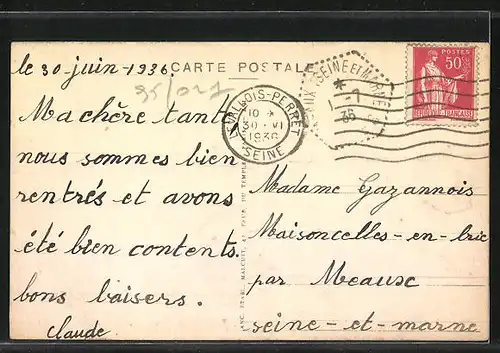 le 30 juin-1936.
CARTE POSTALE
Ma chère tante
nous sommes bien
rentrés et avons
été bien contents.
bons baisers.
Claude.
LEVALLOIS-PERRET
10
30 - VI
1936
SEINE
SEINE ET MARNE
1 - 7
36
POSTES
50c
RÉPUBLIQUE FRANÇAISE
Madame Gazannois
Maisoncelles-en-brie
par Meaux
seine-et-marne